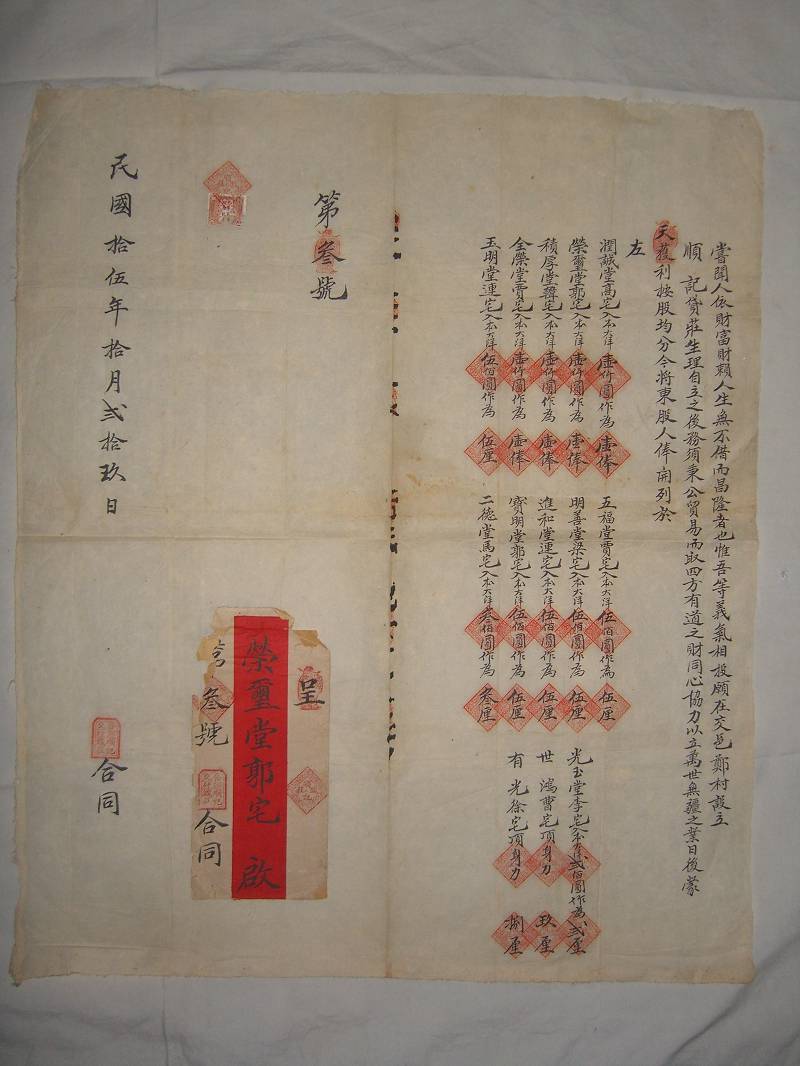 嘗聞人依財富財賴人生無不借而昌隆者也惟吾等義氣相投願在交邑鄭村設立
順記貸莊生理自立之後務須秉公貿易而取四方有道之財同心協力以立萬世無疆之業日後蒙
天獲利按股均分今將東股人俸開列於
左
潤誠堂高宅入本大洋壹仟圓作為壹俸
五福堂賈宅入本大洋伍佰圓作為伍厘
光玉堂李宅入本大洋弍佰圓作為弍厘
榮璽堂郭宅入本大洋壹仟圓作為壹俸
明善堂梁宅入本大洋伍佰圓作為伍厘
世鴻曹宅頂身力玖厘
積厚堂韓宅入本大洋壹仟圓作為壹俸
進和堂連宅入本大洋伍佰圓作為伍厘
有光徐宅頂身力捌厘
全榮堂賈宅入本大洋壹仟圓作為壹俸
寶明堂郭宅入本大洋伍佰圓作為伍厘
玉明堂連宅入本大洋伍佰圓作為伍厘
二德堂馬宅入本大洋叄佰圓作為叄厘
第叄號
呈
榮璽堂郭宅 啟
叄號
合同
民國拾伍年拾月弍拾玖日
合同